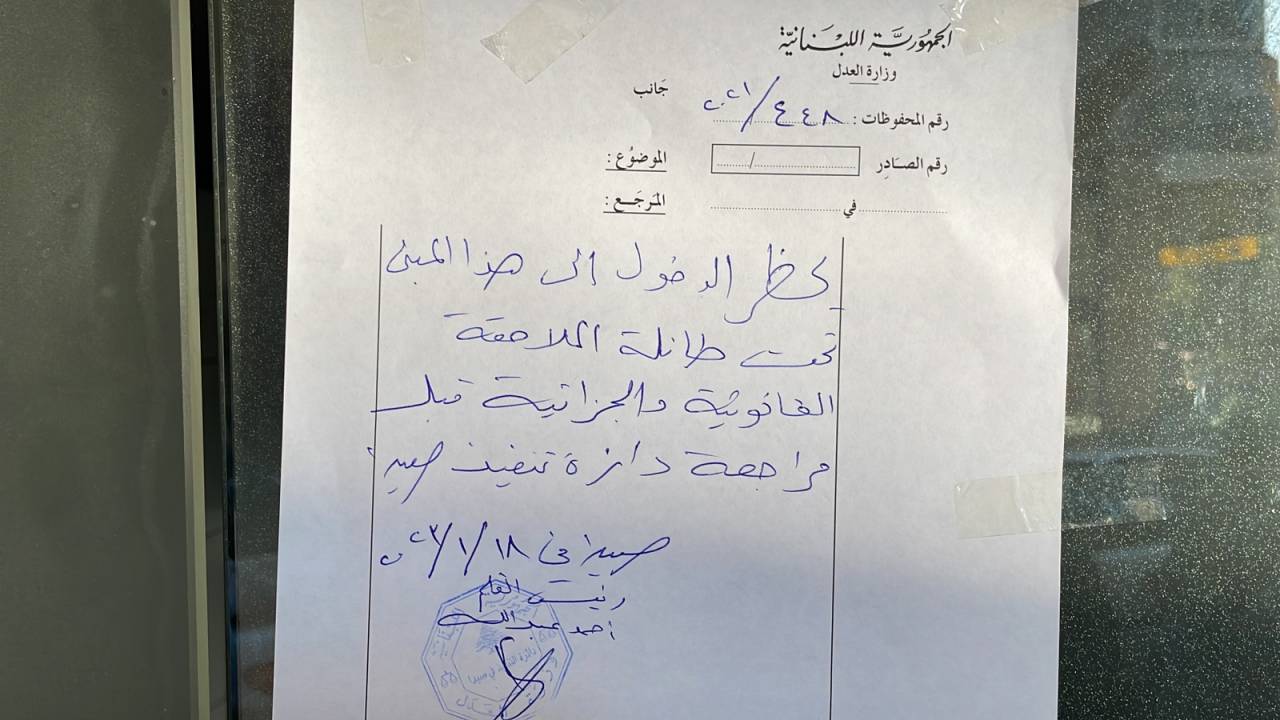 الجمهوريّة اللبنانيّة
وزارة العدل
جَانب
رقم المحفوظات : ٤٤٨/٢٠٢١
رقم الصَادِر / الموضُوع :
في المرَجَع :
يحظر الدخول الى هذا المبنى
تحت طائلة الملاحقة
القانونية والجزائية قبل
مراجعة دائرة تنفيذ صيدا
صيدا في ١٨/١/٢٠٢٣
رئيس القلم
أحمد عبدالله